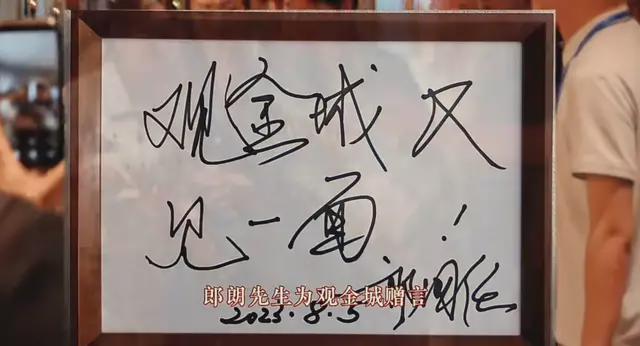 观金城又
见一面！
郎朗先生为观金城赠言
2023.8.5